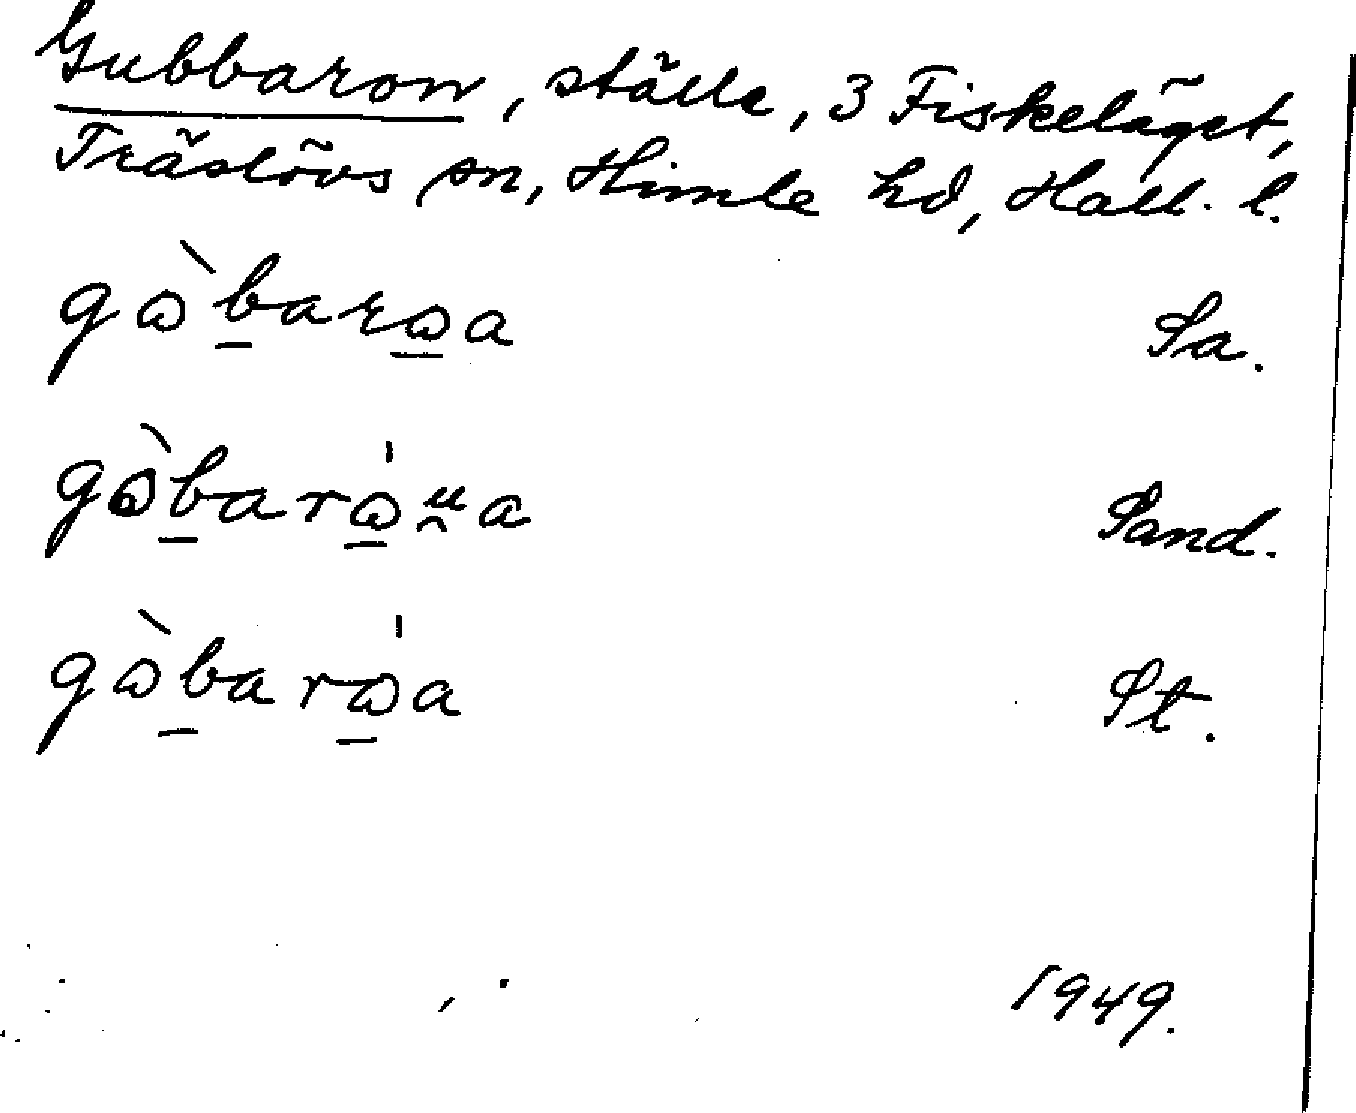 Gubbaron, ställe, 3 Fiskeläget,
Träslövs sn, Himle hd, Hall. l.
gɷ̀barɷa Sa.
gɷ̀barɷ̍u̯a Sand.
gɷ̀barɷ̍a St.
1949.